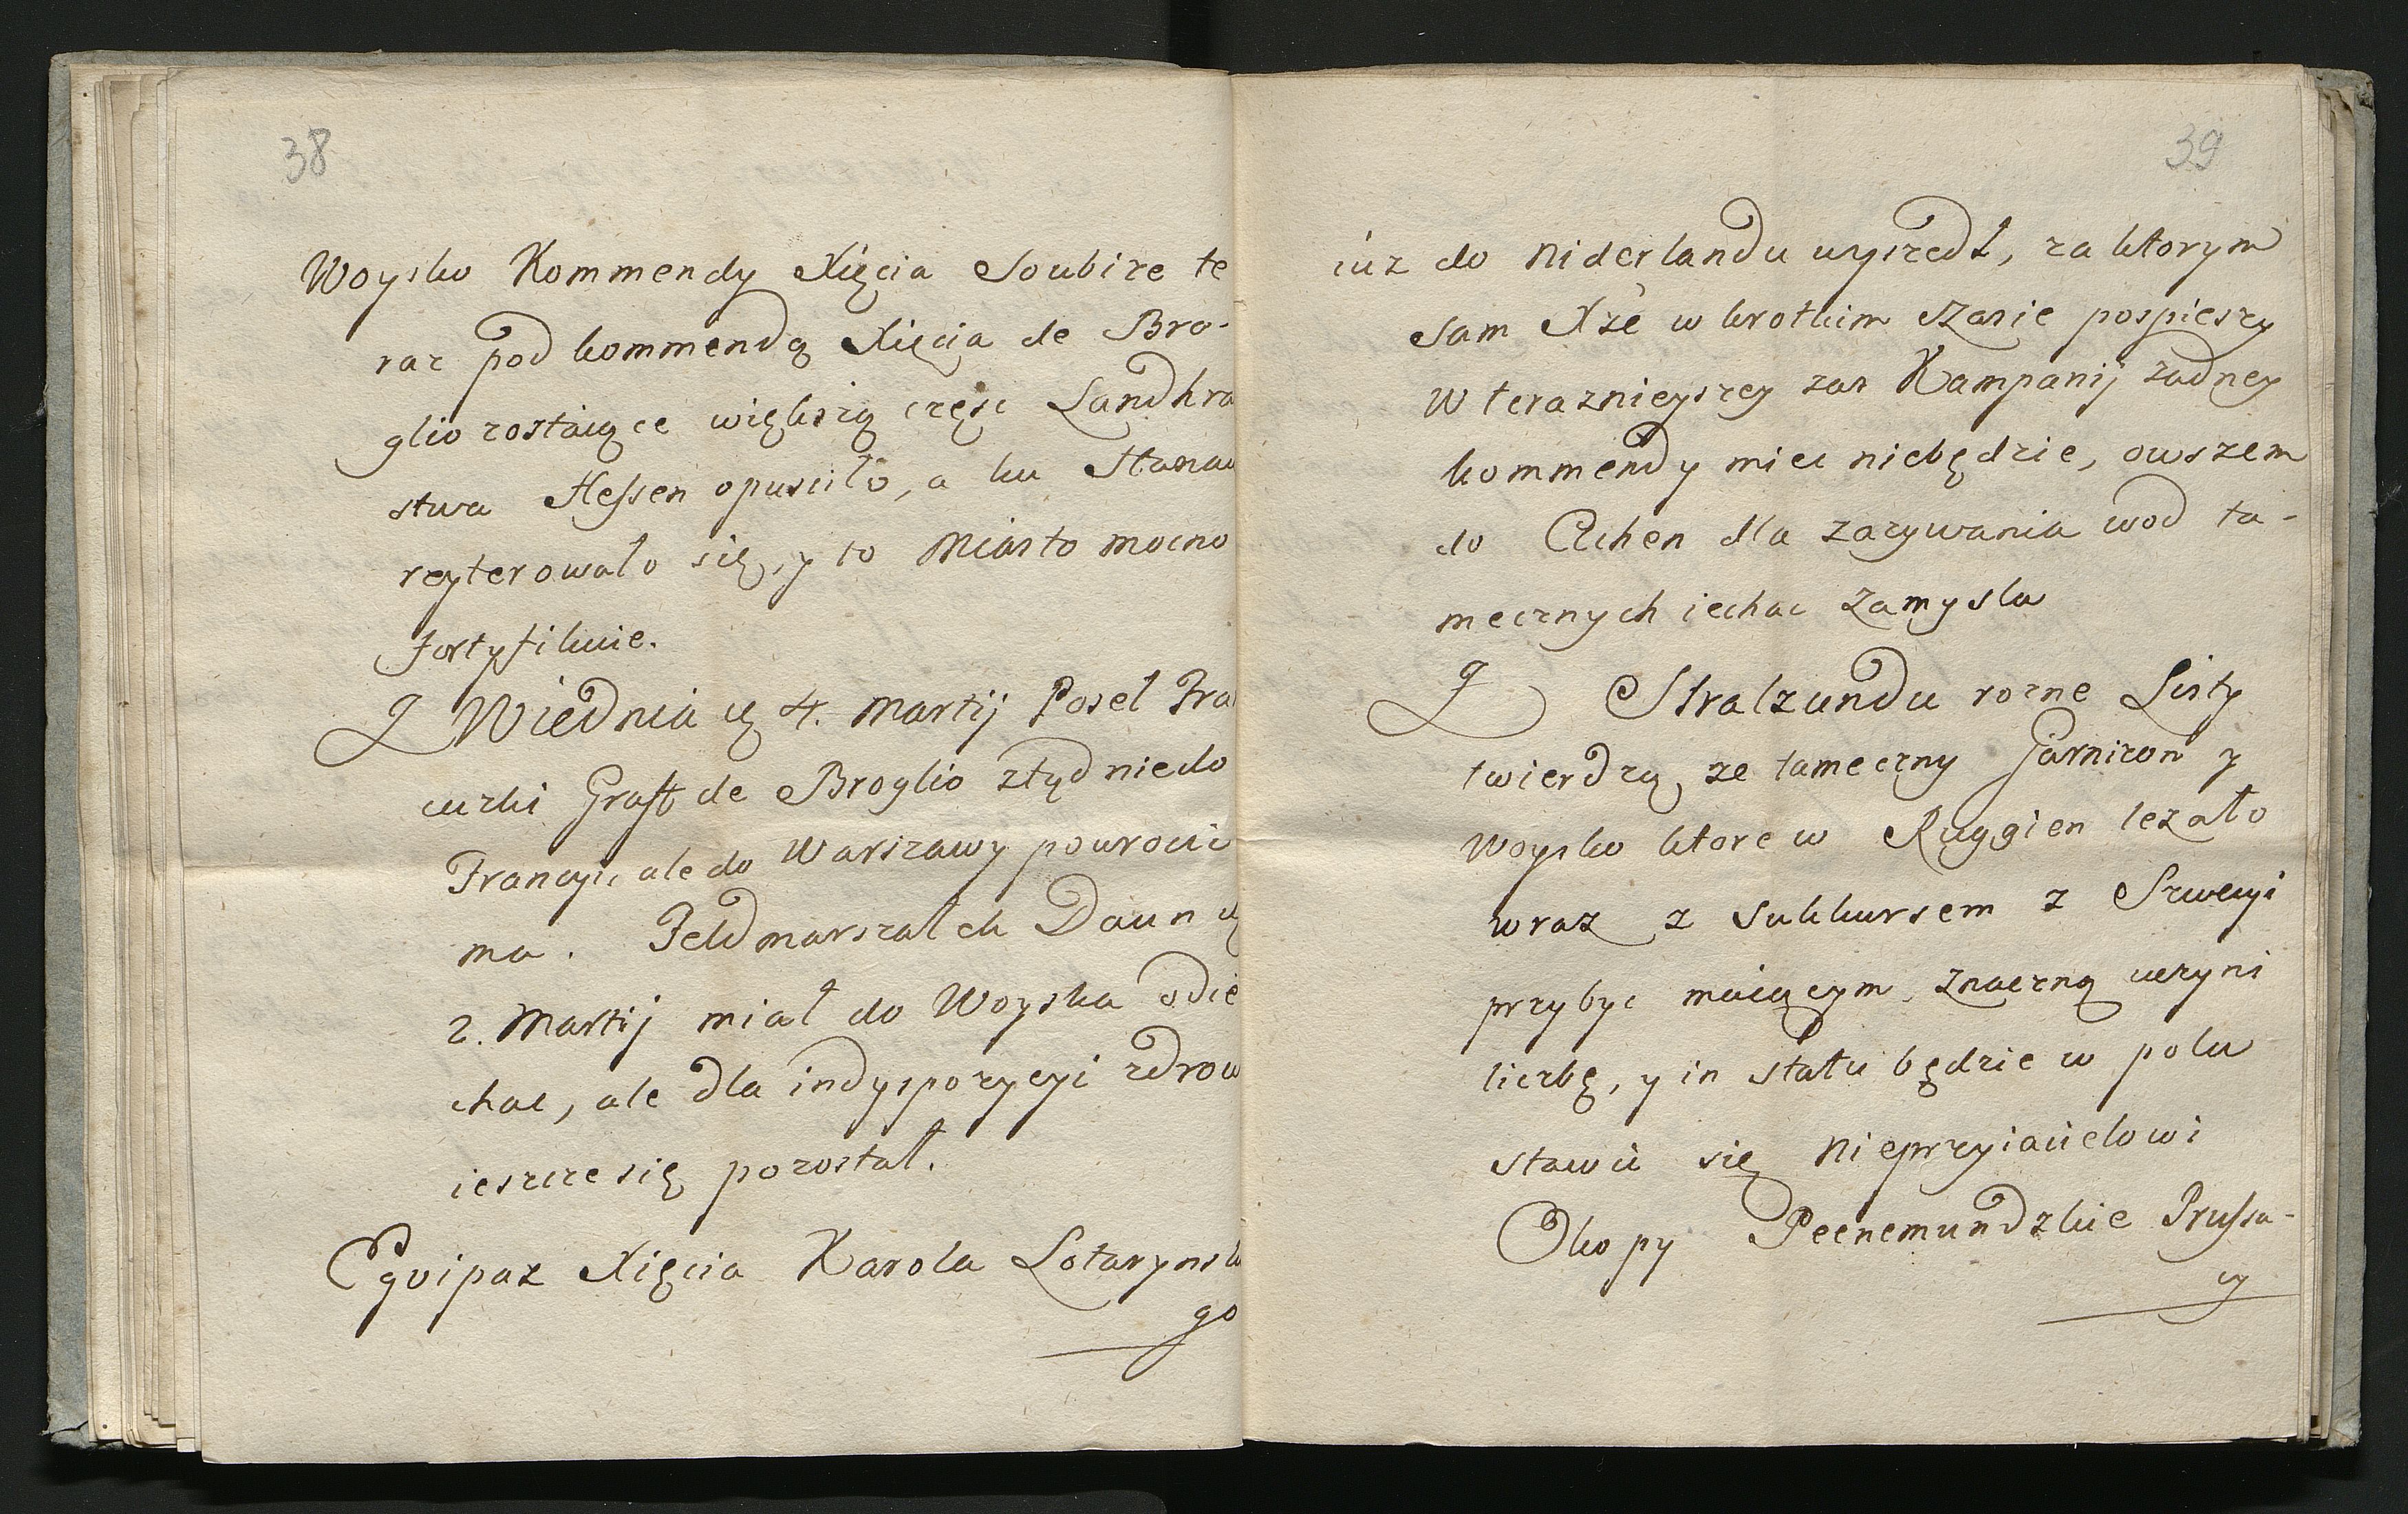 38
Woysko Kommendy Xięcia Soubize te
raz pod kommendą Xięcia de Bro-
glio zostaiące większą częsc Landhra
stwa Hessen opusciło, a ku Hanau
reyterowało się, y to Miasto mocno
fortyfikuie.
Z Wiednia ą 4. Martij Poseł Fra
cuzki Graff de Broglio ztąd niedo
Francyi, ale do Warszawy powrocic
ma. Feldmarszałek Daun ą
2. Martij miał do Woyska odie
chac, ale dla indyspozycyi zdrow
ieszcze się pozostał.
Eqvipaz Xięcia Karola Lotarynsk
go
39
iuz do Niderlandu wyszedł, za ktorym
sam Xże w krotkim czasie pospieszy
W terazniejszey zas Kampanij zadney
kommendy miec niebędzie, owszem
do Achen dla zazywania wod ta-
mecznych iechac zamysla
Z Stralzundu rozne Listy
twierdzą, ze tameczny Garnizon y
Woysko ktore w Ruggien lezało
wraz z sukkursem z Szwecyi
przybyc maiącym, znaczną uczyni
liczbę, y in statu będzie w polu
stawic się Nieprzyiacielowi
Okopy Peenemundzkie Prussa-
cy